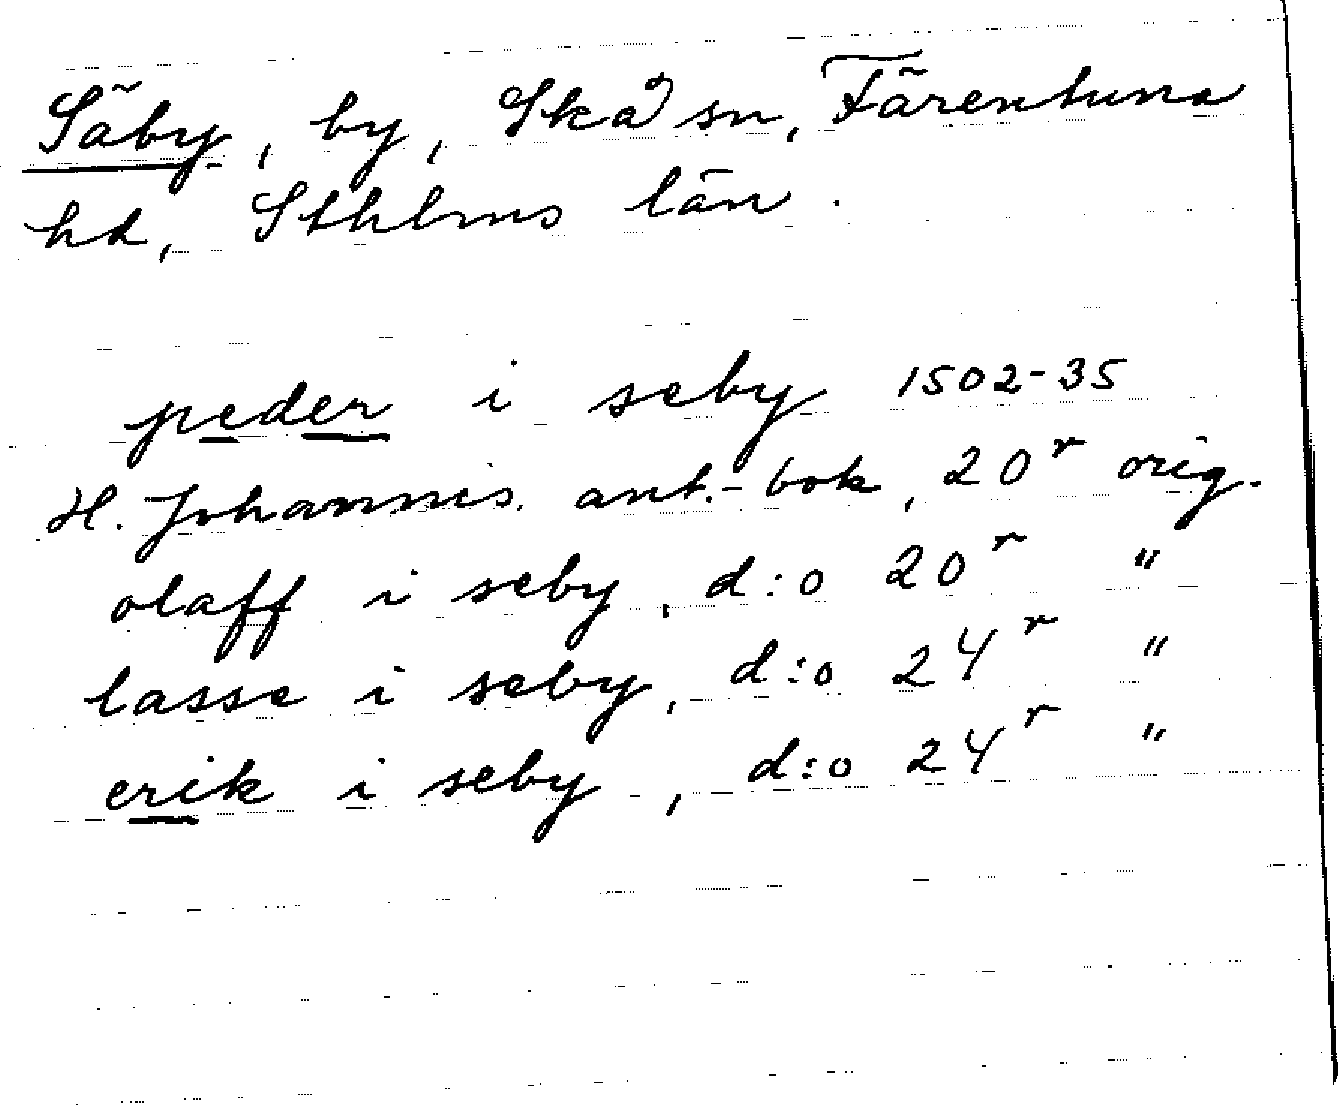 Säby, by, Skå sn, Färentuna
hd, Sthlms län.
peder i seby 1502-35
H. Johannis ant.-bok, 20r orig.
olaff i seby, d:o 20r "
lasse i seby, d:o 24r "
erik i seby, d:o 24r "